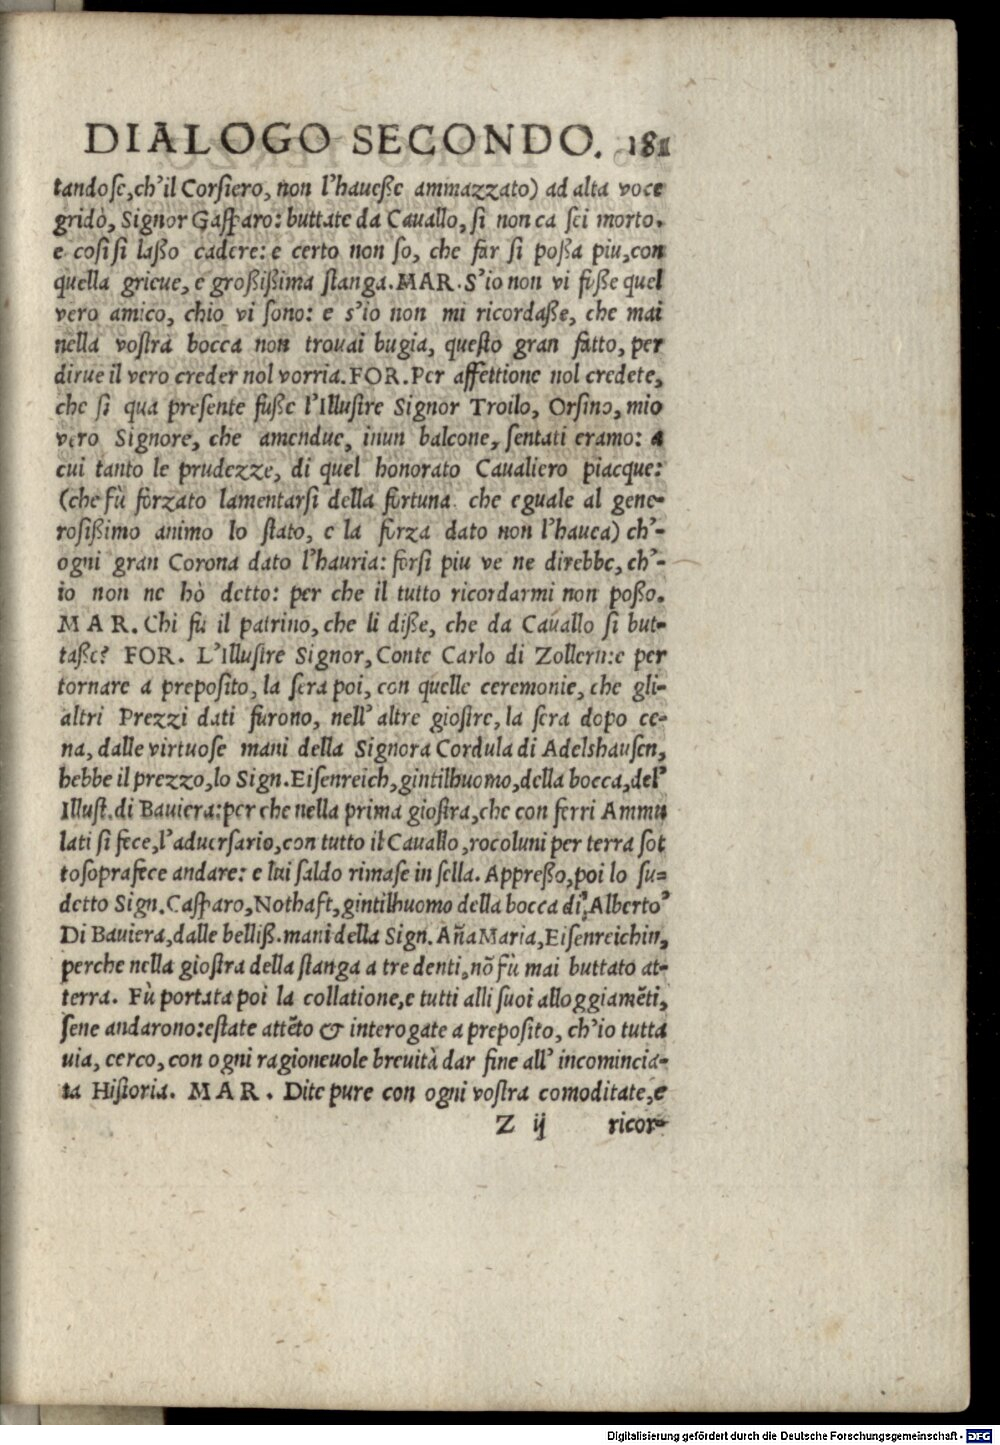 DIALOGO SECONDO. 181
tandose,ch'il Corsiero, non l'haueße ammazzato) ad alta voce
gridò, Signor Gasparo: buttate da Cauallo, si non ca sei morto.
e cosi si laßo cadere: e certo non so, che far si poßa piu,con
quella grieue, e großißima stanga.MAR.S'io non vi fuße quel
vero amico, chio vi sono: e s'io non mi ricordaße, che mai
nella vostra bocca non trouai bugia, questo gran fatto, per
dirue il vero creder nol vorria.FOR.Per affettione nol credete,
che si qua presente fuße l'Illustre Signor Troilo, Orsino, mio
vero Signore, che amendue, inun balcone, sentati eramo: a
cui tanto le prudezze, di quel honorato Caualiero piacque:
(che fù forzato lamentarsi della fortuna che eguale al gene-
rosißimo animo lo stato, e la forza dato non l'hauea) ch'-
ogni gran Corona dato l'hauria: forsi piu ve ne direbbe, ch'-
io non ne hò detto: per che il tutto ricordarmi non poßo.
MAR. Chi fu il patrino, che li diße, che da Cauallo si but-
taße? FOR. L'Illustre Signor, Conte Carlo di Zollern:e per
tornare a preposito, la sera poi, con quelle ceremonie, che gli-
altri Prezzi dati furono, nell'altre giostre, la sera dopo ce-
na, dalle virtuose mani della Signora Cordula di Adelshausen,
hebbe il prezzo,lo Sign.Eisenreich,gintilhuomo,della bocca,del'
Illust.di Bauiera:per che nella prima giostra,che con ferri Ammu
lati si fece,l'aduersario,con tutto il Cauallo,rocoluni per terra sot
tosoprafece andare: e lui saldo rimase in sella. Appreßo,poi lo su=
detto Sign.Casparo,Nothaft,gintilhuomo della bocca di,'Alberto'
Di Bauiera,dalle belliß.mani della Sign.AñaMaria,Eisenreichin,
perche nella giostra della stanga a tre denti,nõ fù mai buttato at-
terra. Fù portata poi la collatione,e tutti alli suoi alloggiamẽti,
sene andarono:estate attẽto & interogate a preposito, ch'io tutta
uia, cerco, con ogni ragioneuole breuità dar fine all'incomincia-
ta Historia. MAR. Dite pure con ogni vostra comoditate,e
Z ij ricor-
Digitalisierung gefördert durch die Deutsche Forschungsgemeinschaft - DFG